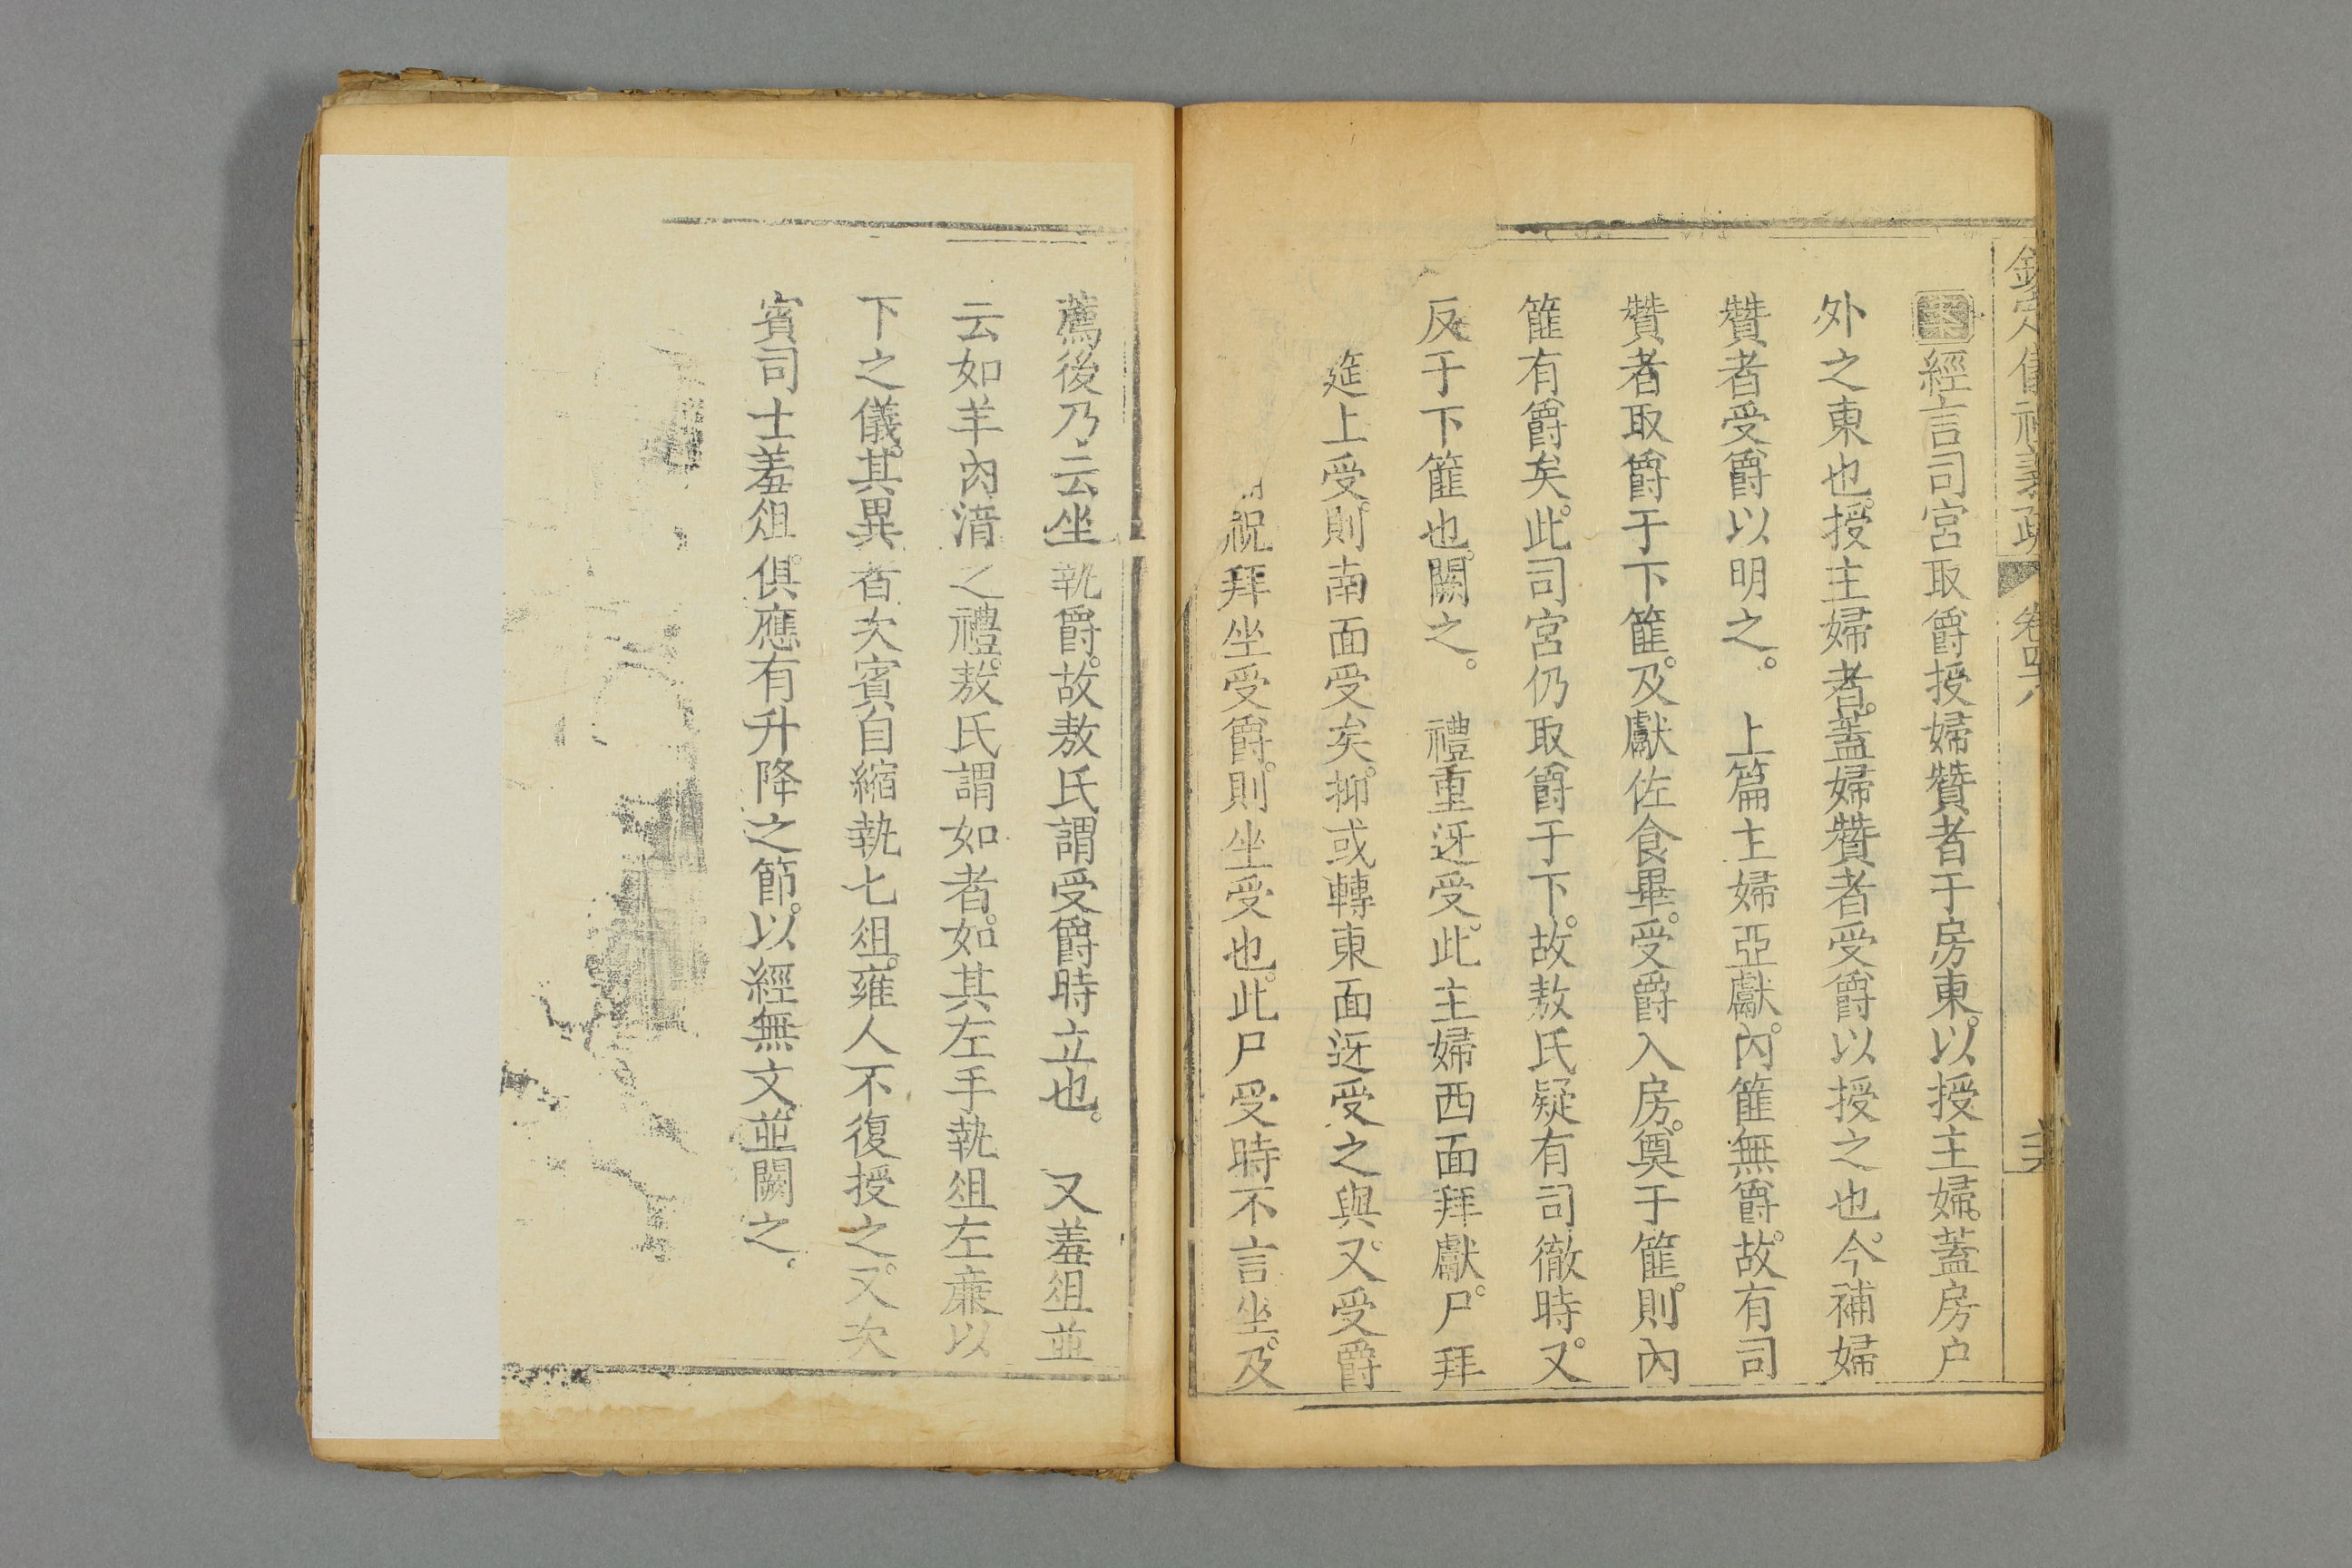 欽定儀禮義疏 卷四十八
經言司宮取爵授婦贊者于房東。以授主婦。蓋房户
外之東也。授主婦者。蓋婦贊者受爵以授之也。今補婦
贊者受爵以明之。 上篇主婦亞獻。内篚無爵。故有司
贊者取爵于下篚。及獻佐食畢。受爵入房。奠于篚。則內
篚有爵矣。此司宮仍取爵于下。故敖氏疑有司徹時。又
反于下篚也。闕之。 禮重迓受。此主婦西面拜獻。尸拜
筵上受。則南面受矣。抑或轉東面迓受之與。又受爵
祝拜坐受爵。則坐受也。此尸受時不言坐。及
薦後乃云坐執爵。故敖氏謂受爵時立也。 又羞俎並
云如羊肉湆之禮。敖氏謂如者。如其左手執俎左廉以
下之儀。其異者次賓自縮執匕俎。雍人不復授之。又次
賓司士羞俎。俱應有升降之節。以經無文並闕之。